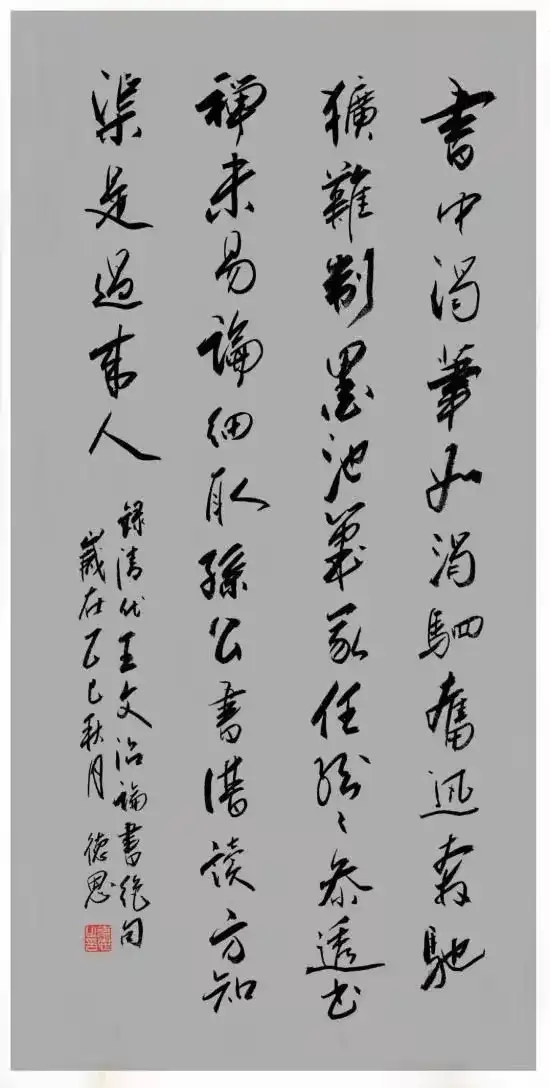 書中渴筆如渴駟奮迅奔馳
獷難制墨池筆冢任紛〻參透書
禪未易論細取孫公書譜读方知
渠是過來人
錄清代王文治論書絕句
歲在乙巳秋月 德思